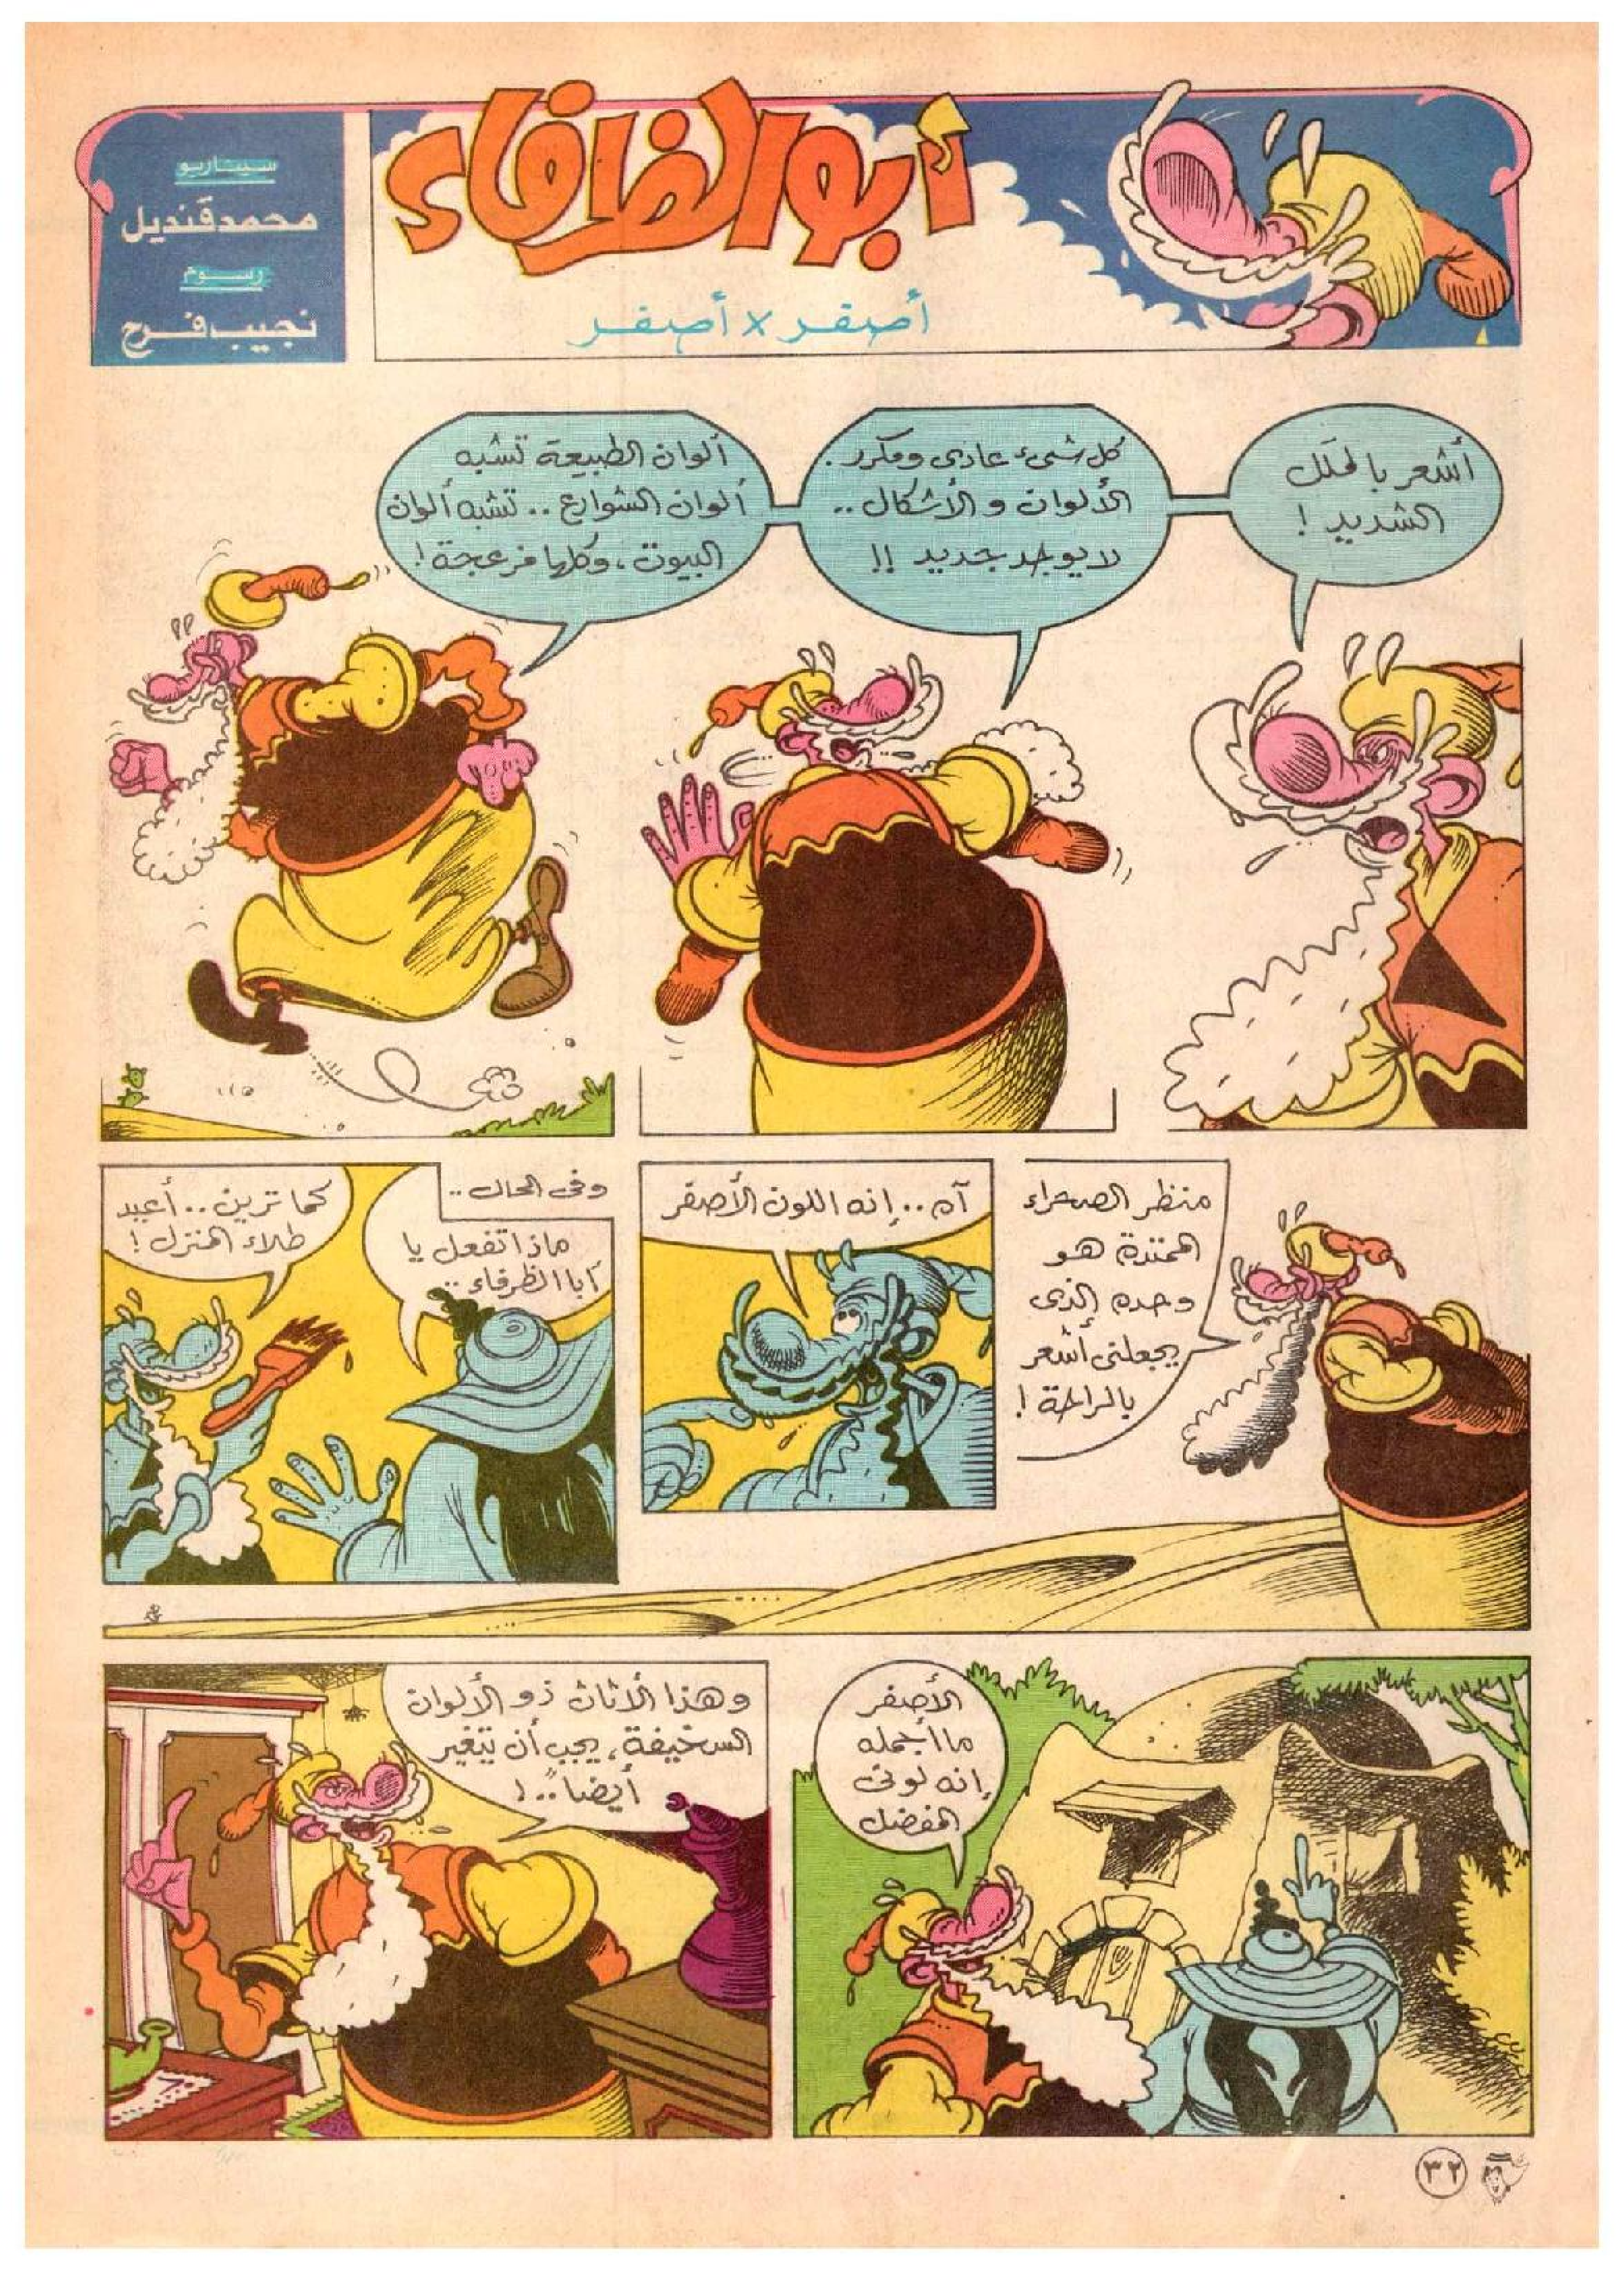 أبو الظرفاء
أصفر × أصفر
سيناريو
محمد قنديل
رسوم
نجيب فرح
أشعر بالملل
الشديد !
كل شيء عادى ومكرر .
الألوان والأشكال ..
لا يوجد جديد !!
ألوان الطبيعة تشبه
ألوان الشوارع .. تشبه ألوان
البيوت ، وكلها مزعجة !
منظر الصحراء
الممتدة هو
وحده الذى
يجعلنى أشعر
بالراحة !
آه .. إنه اللون الأصفر
وفى الحال ..
ماذا تفعل يا
أبا الظرفاء ..
كما ترين .. أعيد
طلاء المنزل !
الأصفر
ما أجمله
إنه لونى
المفضل
وهذا الأثاث ذو الألوان
السخيفة ، يجب أن يتغير
أيضاً .. !
٣٢